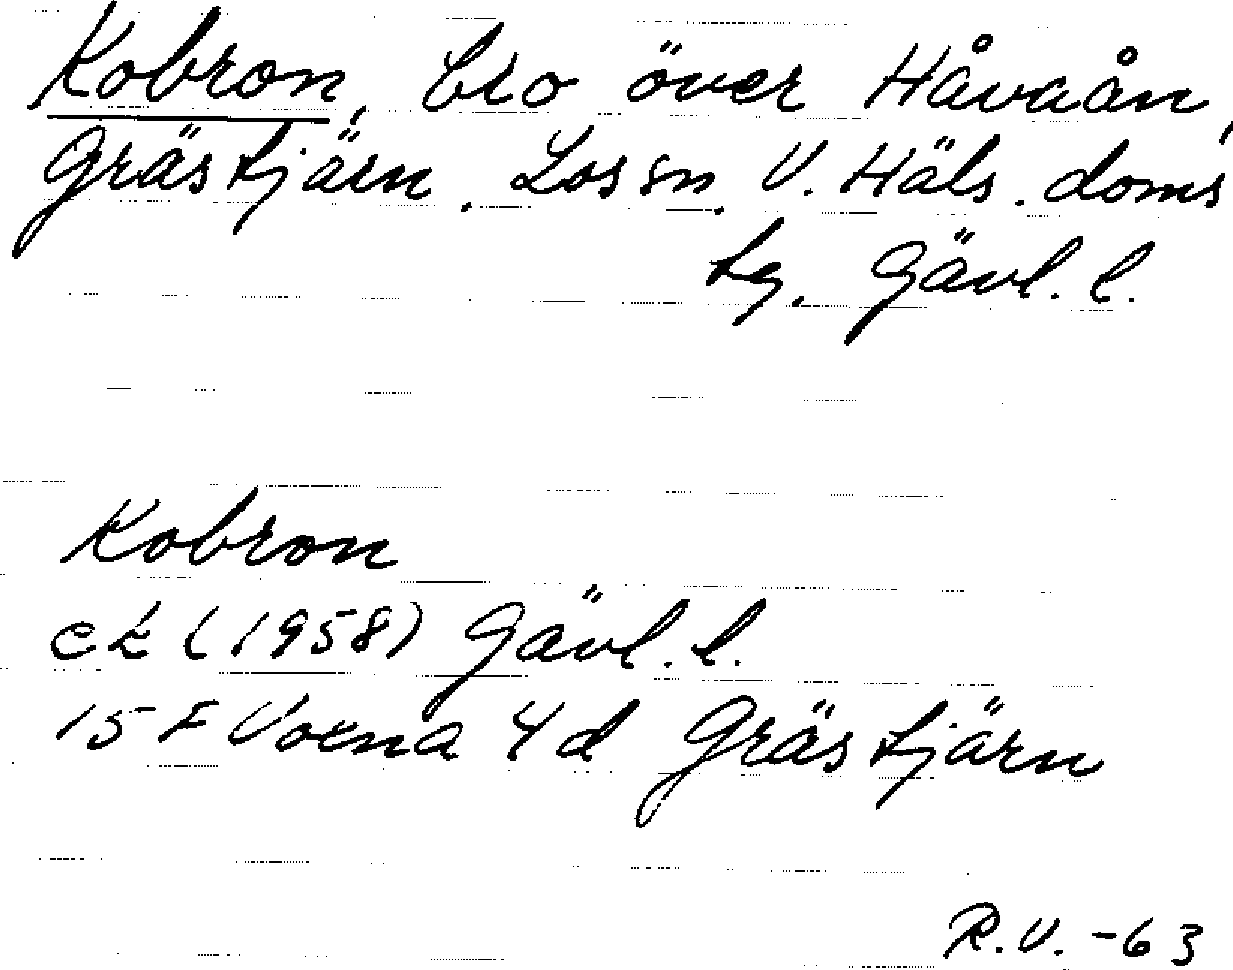 Kobron, bro över Håvaån,
Grästjärn. Los sn. V. Häls. doms
tg. Gävl. l.
Kobron
ek (1958) Gävl. l.
15 F Voxna 4 d Grästjärn
R.V. -63